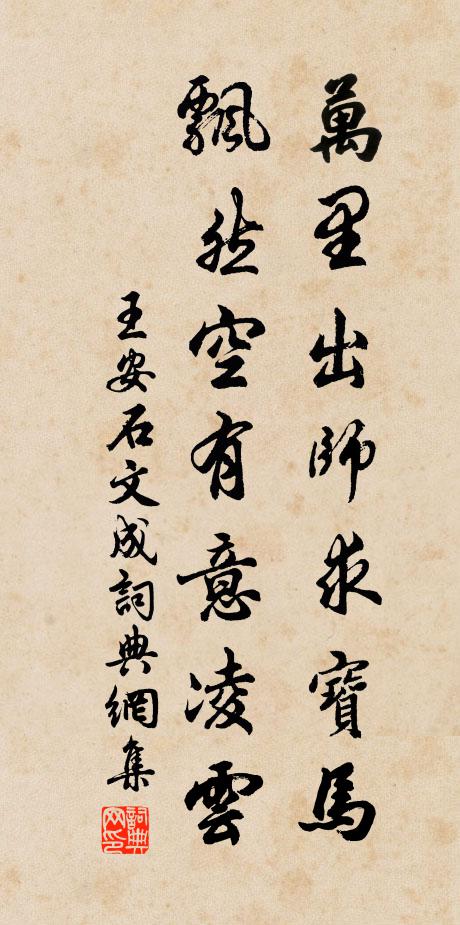 萬里出師求寶馬
飄然空有意凌雲
王安石文成詞典網集
詞典网印